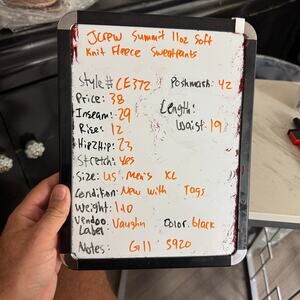 JCrew Summit 11oz Soft
Knit Fleece Sweatpants
Style# CE372 Poshmark: 42
Price: 38 Length:
Inseam: 29 Waist: 19
Rise: 12
Hip2Hip: 23
Stretch: Yes
Size: US Men's XL
Condition: New With Tags
Weight: 1.10
Vendoo Label: Vaughn Color: black
Notes: G11 5920